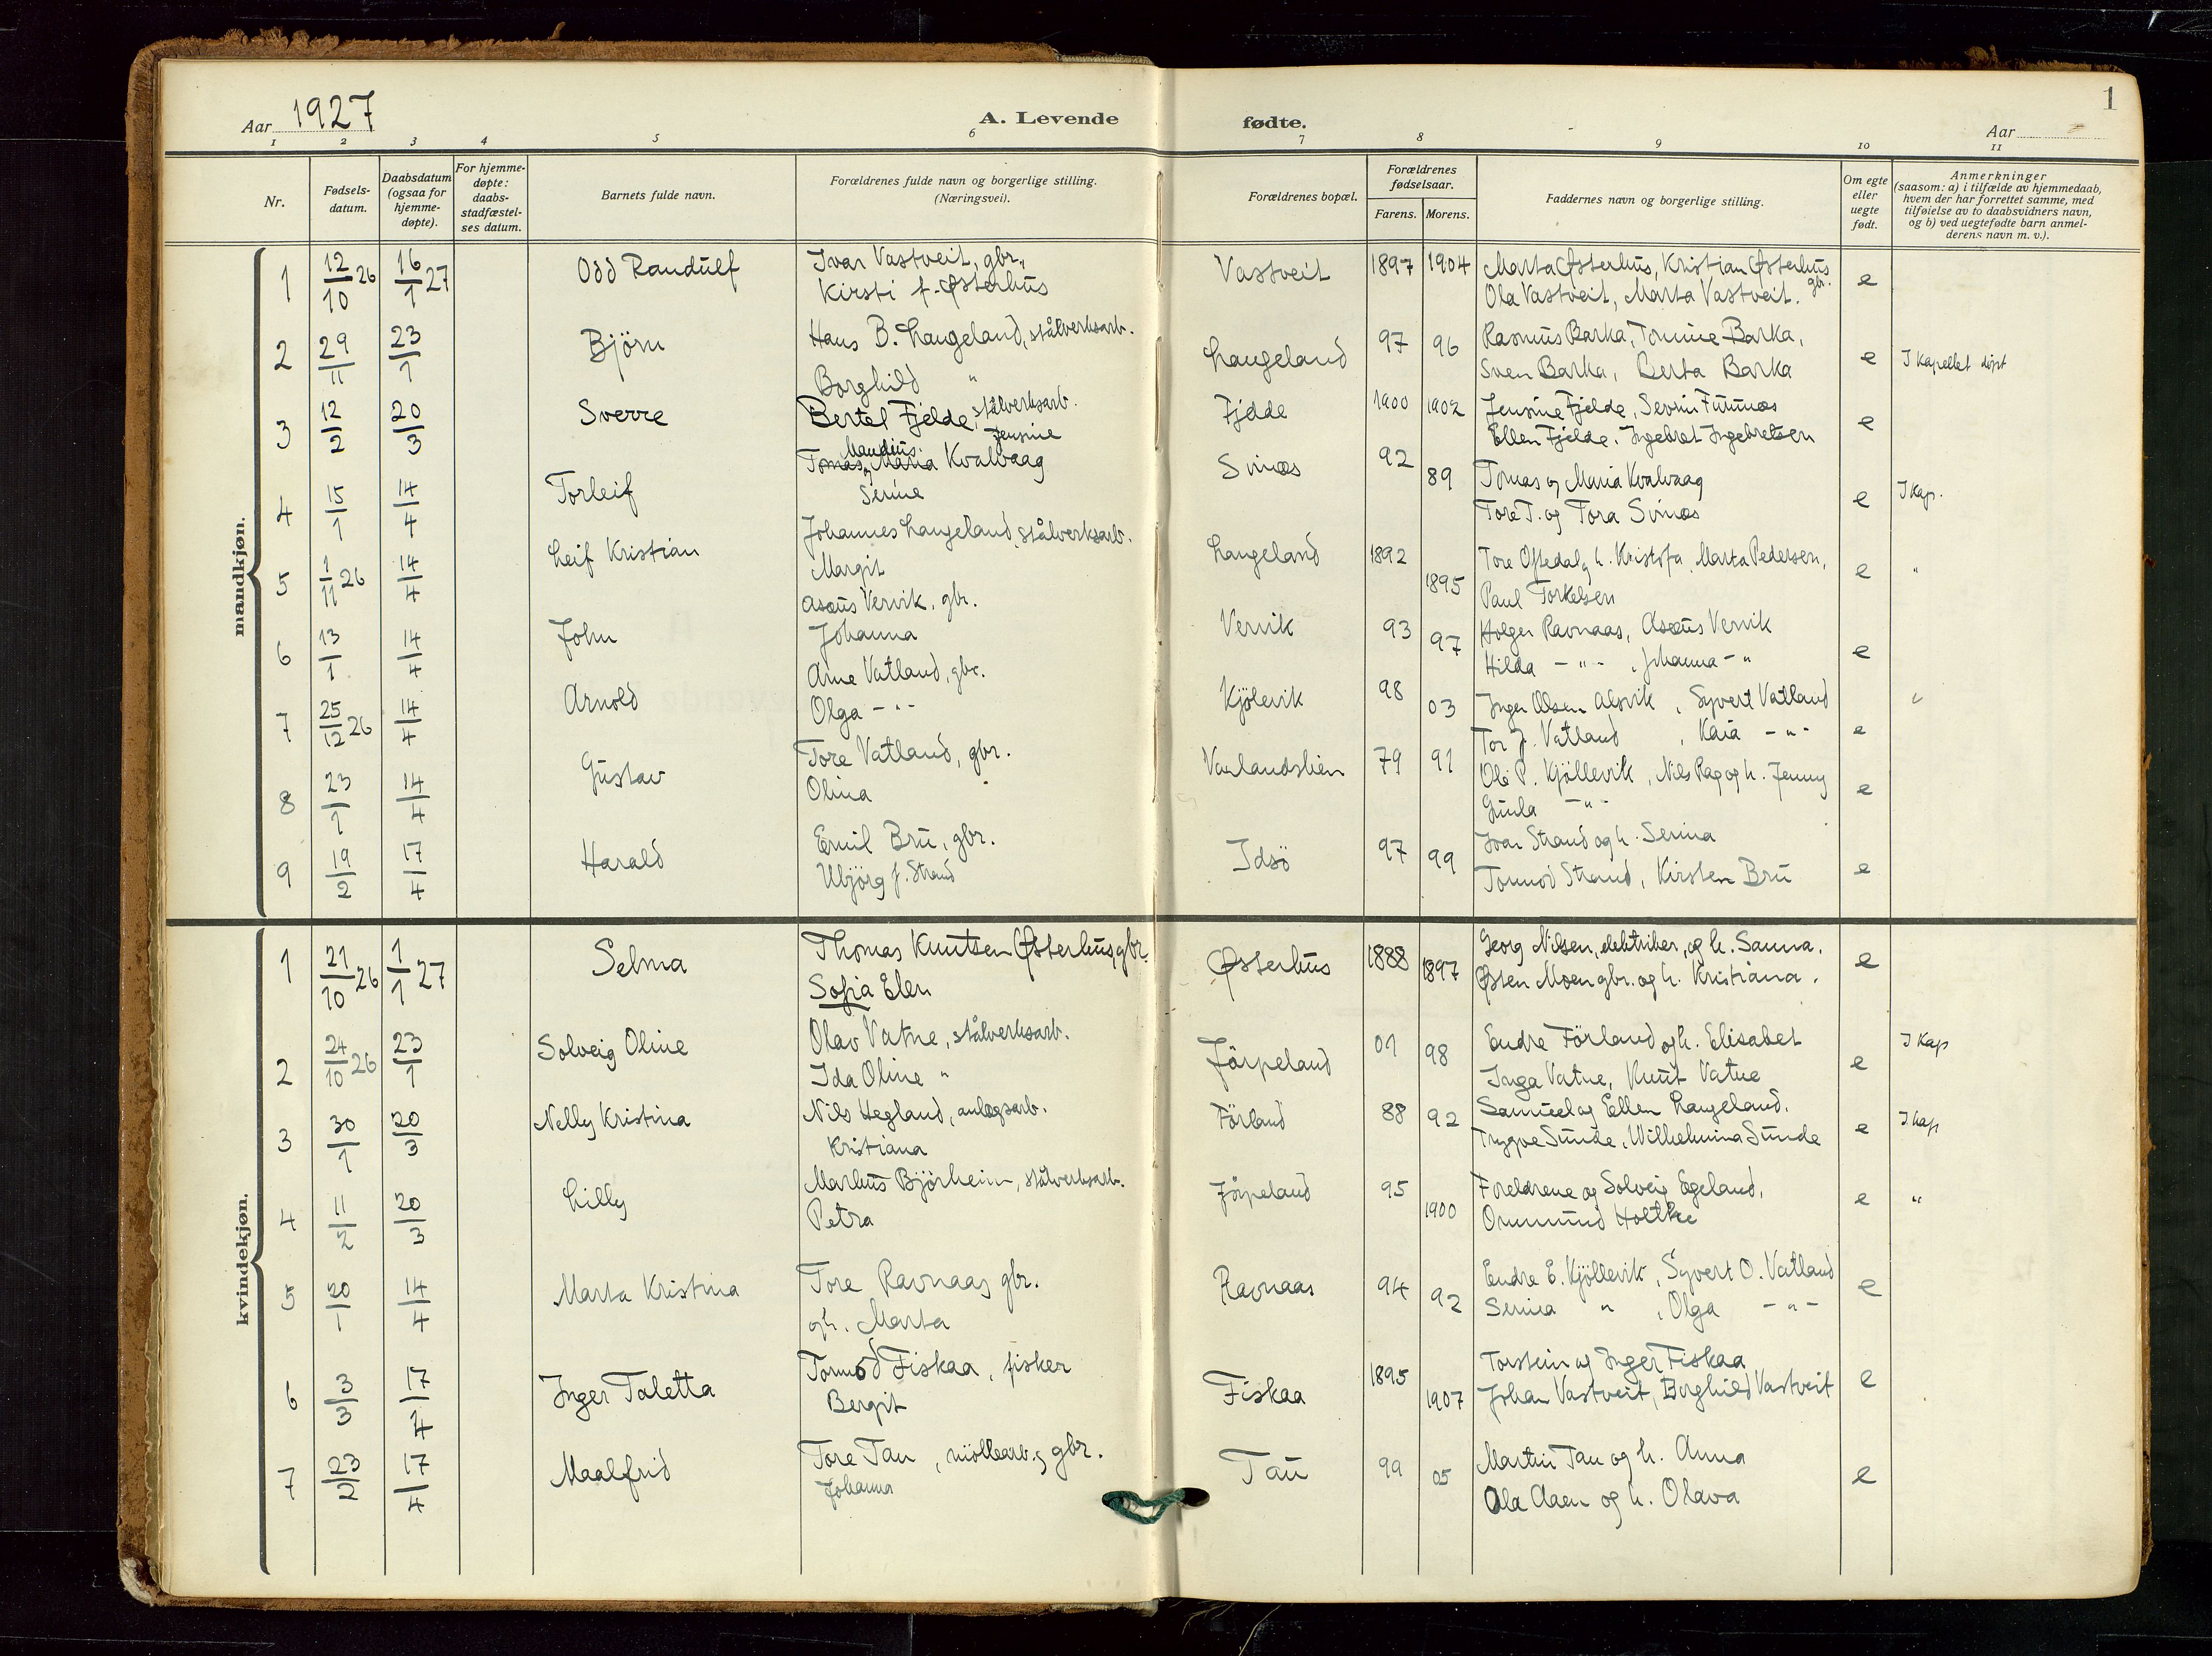 Aar 1927
A. Levende fødte.
1
Aar
1 2 3 4 5 6 7 8 9 10 11
Nr.
Fødsels-datum.
Daabsdatum (ogsaa for hjemme-døpte).
For hjemme-døpte: daabs-stadfæstel-ses datum.
Barnets fulde navn.
Forældrenes fulde navn og borgerlige stilling. (Næringsvei).
Forældrenes bopæl.
Forældrenes fødselsaar.
Farens. Morens.
Faddernes navn og borgerlige stilling.
Om egte eller uegte født.
Anmerkninger
(saasom: a) i tilfælde av hjemmedaab,
hvem der har forrettet samme, med
tilføielse av to daabsvidners navn,
og b) ved uegtefødte barn anmel-
derens navn m. v.).
mandkjøn.
1 12/10 26 16/1 27 Odd Randulf Ivar Vastveit, gbr., Vastveit 1897 1904 Marta Østerhus, Kristian Østerhus gbr. e
Kirsti f. Østerhus Ola Vastveit, Marta Vastveit.
2 29/11 23/1 Björn Hans B. Langeland, stålverksarb. Langeland 97 96 Rasmus Barka, Tomine Barka, e I kapellet döpt
Borghild " Sven Barka, Berta Barka
3 12/2 20/3 Sverre Bertel Fjelde, stålverksarb. Fjelde 1900 1902 Jensine Fjelde, Sevrin e
Jensine Ellen Fjelde. Ingebret Ingebretsen
4 15/1 14/4 Torleif Tomas og Maria Kvalvaag Svinæs 92 89 Tomas og Maria Kvalvaag e I kap.
Serine Tore T. og Tora Svinæs
5 1/11 26 14/4 Leif Kristian Johannes Langeland, stålverksarb. Langeland 1892 1895 Tore Oftedal og h. Kristofa, Marta Pedersen, e "
Margit Paul Torkelsen
6 13/1 14/4 John Asæus Vervik, gbr. Vervik 93 97 Holger Ravnaas, Asæus Vervik e
Johanna Hilda - " - , Johanna - "
7 25/12 26 14/4 Arnold Arne Vatland, gbr. Kjölevik 98 03 Inger Olsen Alsvik, Syvert Vatland e
Olga - " - Tor J. Vatland, Kaia - " -
8 23/1 14/4 Gustav Tore Vatland, gbr. 79 91 Ole P. Kjöllevik, Nils Rag og h. Jenny e
Olina Gunla - " -
9 19/2 17/4 Harald Emil Bru, gbr. Idsö 97 99 Ivar Strand og h. Serina e
Ubjörg f. Strand Tormod Strand, Kirsten Bru
kvindekjøn.
1 21/10 26 1/1 27 Selma Thomas Knutsen Østerhus, gbr. Østerhus 1888 1897 Georg Nilsen, elektriker, og h. Sanna. e
Sofia Elen Østen Moen gbr. og h. Kristiana.
2 24/10 26 23/1 Solveig Oline Olav Vatne, stålverksarb. Jörpeland 01 98 Endre Förland og h. Elisabet e I kap
Ida Oline " Inga Vatne, Knut Vatne
3 30/1 20/3 Nelly Kristina Nils Hegland, anlægsarb. Förland 88 92 Samuel og Ellen Langeland. e I kap
Kristiana Trygve Sunde, Wilhelmina Sunde
4 11/2 20/3 Lilly Markus Björheim, stålverksarb. Jörpeland 95 1900 Foreldrene og Solveig Egeland, e "
Petra Ommund Holtke
5 20/1 14/4 Marta Kristina Tore Ravnaas gbr. Ravnaas 94 92 Endre E. Kjöllevik, Syvert O. Vatland e
og h. Marta Serina " , Olga - " -
6 3/3 17/4 Inger Taletta Tormod Fiskaa, fisker Fiskaa 1895 1907 Torstein og Inger Fiskaa e
Bergit Johan Vastveit, Borghild Vastveit
7 23/2 17/4 Maalfrid Tore Tau, möllearb. og gbr. Tau 99 05 Martin Tau og h. Anna e
Johanna Ola Aaen og h. Olava